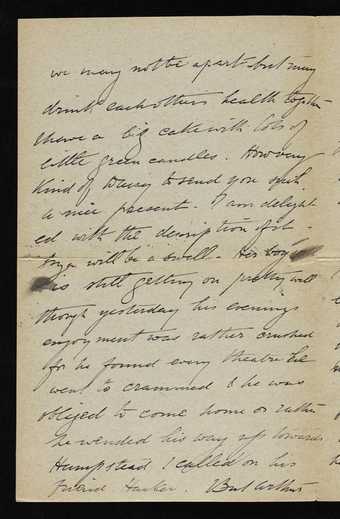 we may not be apart but may
drink each others health together
& have a big cake with lots of
little green candles. How very
kind of Daisy to send you such
a nice present. I am delight
ed with the description of it.
will be a swell. Her boy
is still getting on pretty well
though yesterday his evenings
enjoyment was rather crushed
for he found every theatre he
went to crammed & he was
obliged to come home or rather
he wended his way up towards
Hampstead & called on his
friend Harker. But